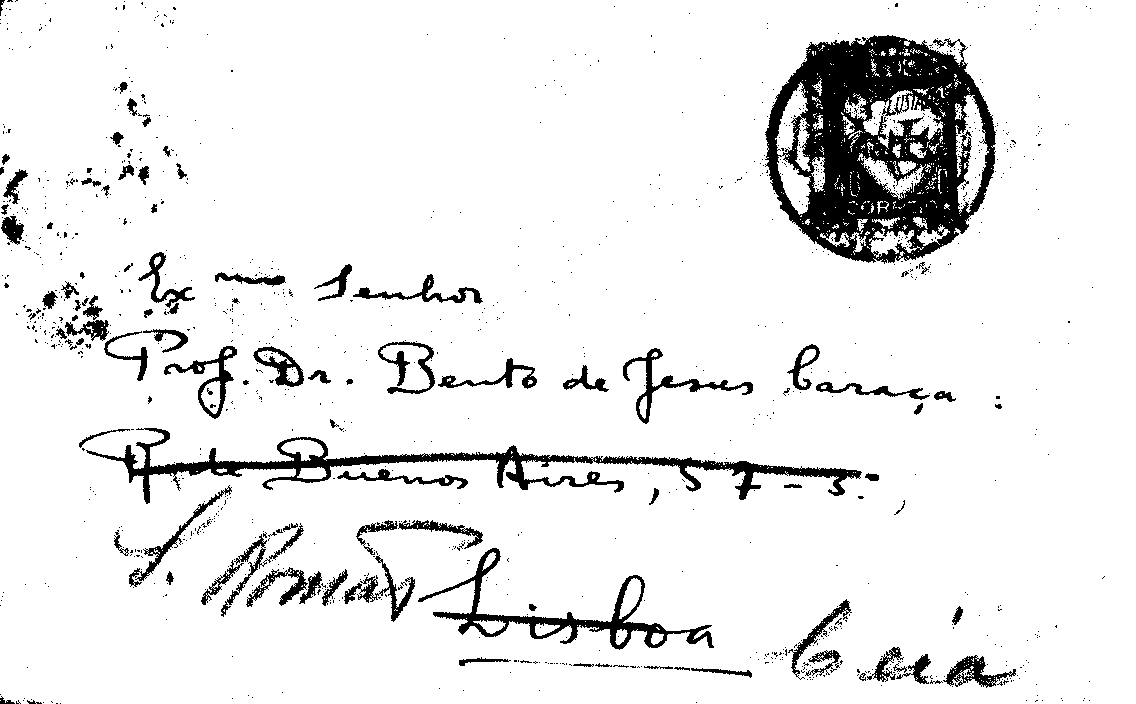 LUSIADAS
CORREIO
Exmo Senhor
Prof. Dr. Bento de Jesus Caraça :
R. de Buenos Aires, 57-3º.,
S. Romão Lisboa Ceia